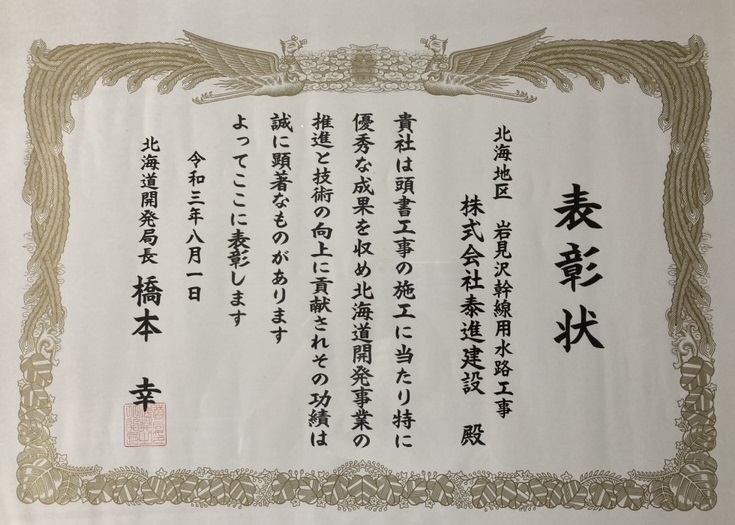 表彰状
北海地区 岩見沢幹線用水路工事
株式会社泰進建設 殿
貴社は頭書工事の施工に当たり特に
優秀な成果を収め北海道開発事業の
推進と技術の向上に貢献されその功績は
誠に顕著なものがあります
よってここに表彰します
令和三年八月一日
北海道開発局長 橋本 幸